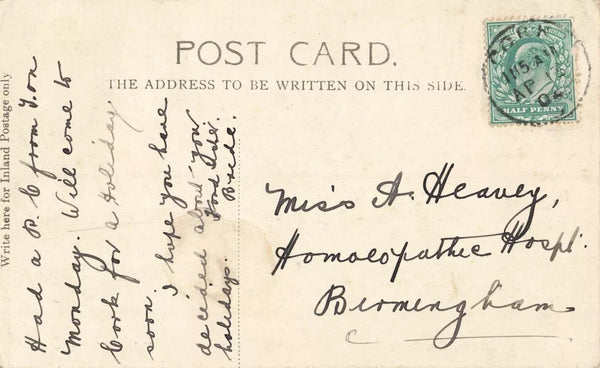 POST CARD.
THE ADDRESS TO BE WRITTEN ON THIS SIDE.
Write here for Inland Postage only
Had a P.C from J. on
Monday. Will come to
Cork for a Holiday
soon. I hope you have
decided about your
holidays.
Fond Love.
Bride.
Miss A. Heavey,
Homoeopathic Hospl.
Birmingham
CORK
1115 AM
AP
04
HALF PENNY